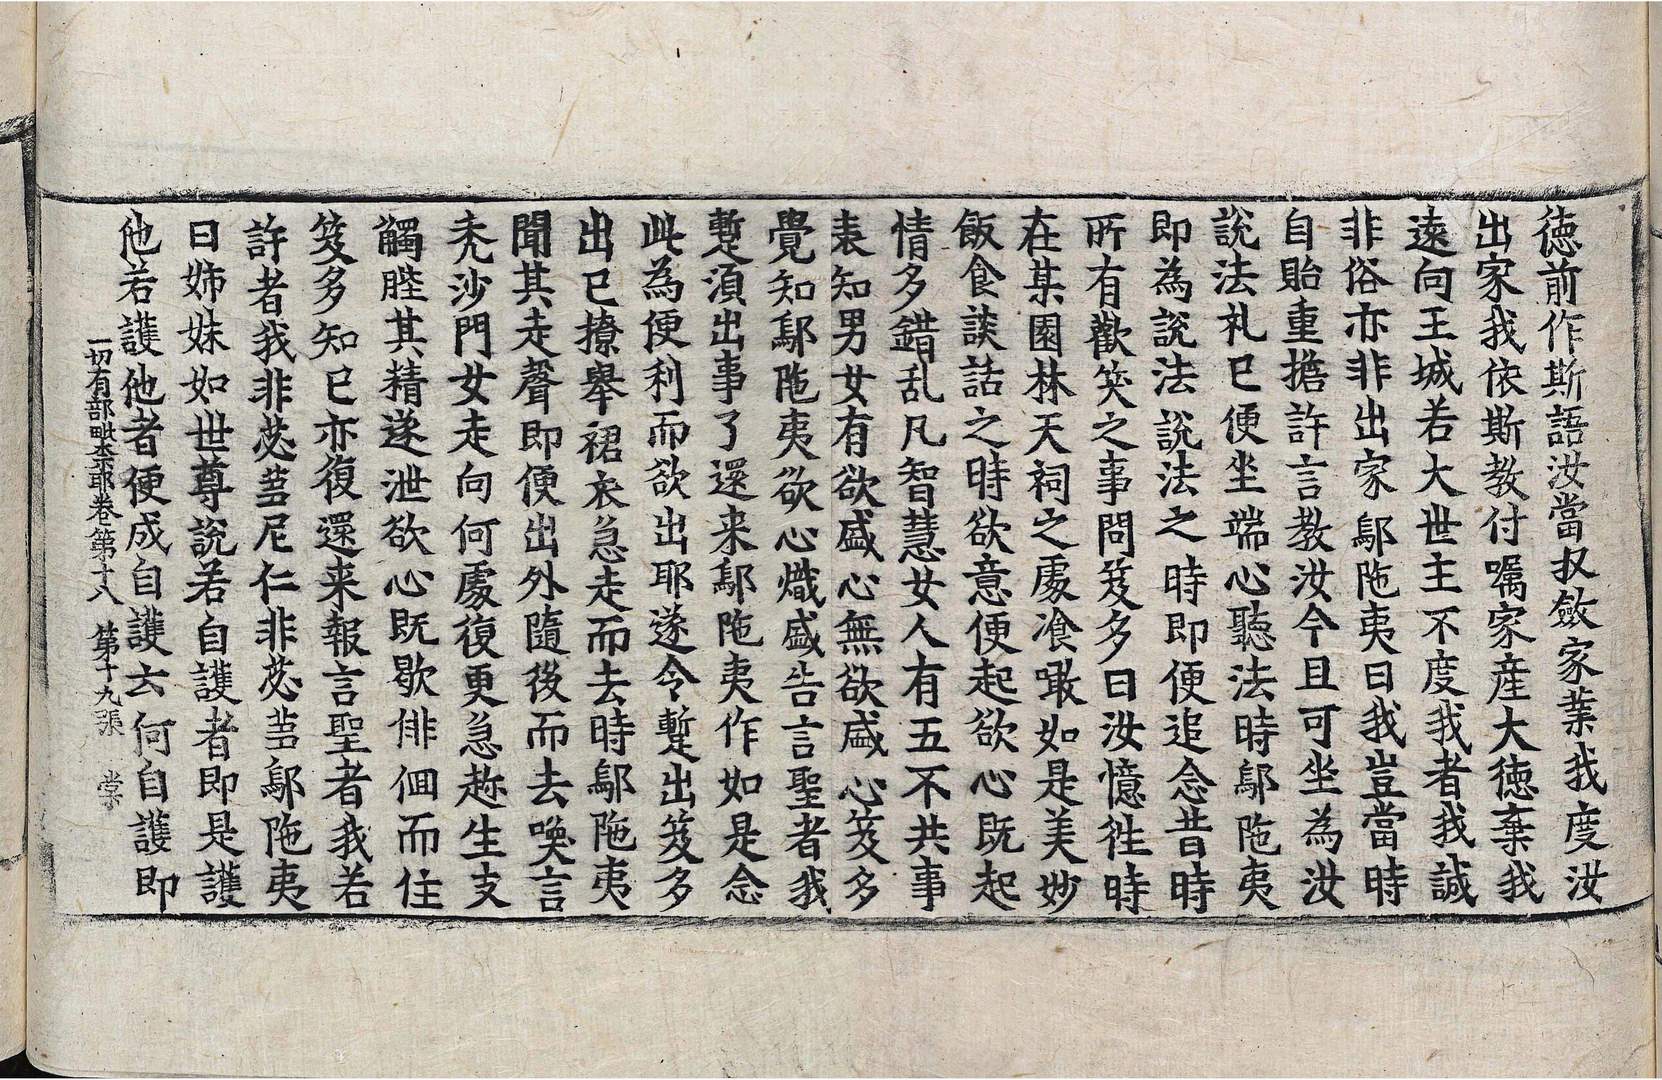 德前作斯語汝當収斂家業我度汝
出家我依斯教付囑家産大德棄我
遠向王城若大世主不度我者我誠
非俗亦非出家鄔陁夷曰我豈當時
自貽重擔許言教汝今且可坐為汝
說法礼已便坐端心聽法時鄔陁夷
即為說法說法之時即便追念昔時
所有歡笑之事問笈多曰汝憶徃時
在某園林天祠之處飡噉如是美妙
飯食談話之時欲意便起欲心既起
情多錯乱凡智慧女人有五不共事
表知男女有欲盛心無欲盛心笈多
覺知鄔陁夷欲心熾盛告言聖者我
蹔湏出事了還来鄔陁夷作如是念
此為便利而欲出耶遂令蹔出笈多
出已撩舉裙衣急走而去時鄔陁夷
聞其走聲即便出外隨後而去喚言
禿沙門女走向何處復更急趂生支
觸髀其精遂泄欲心既歇俳佪而住
笈多知已亦復還来報言聖者我若
許者我非苾蒭尼仁非苾蒭鄔陁夷
曰姊妹如世尊說若自護者即是護
他若護他者便成自護云何自護即
一切有部毗柰耶卷第十八 第十九張 棠